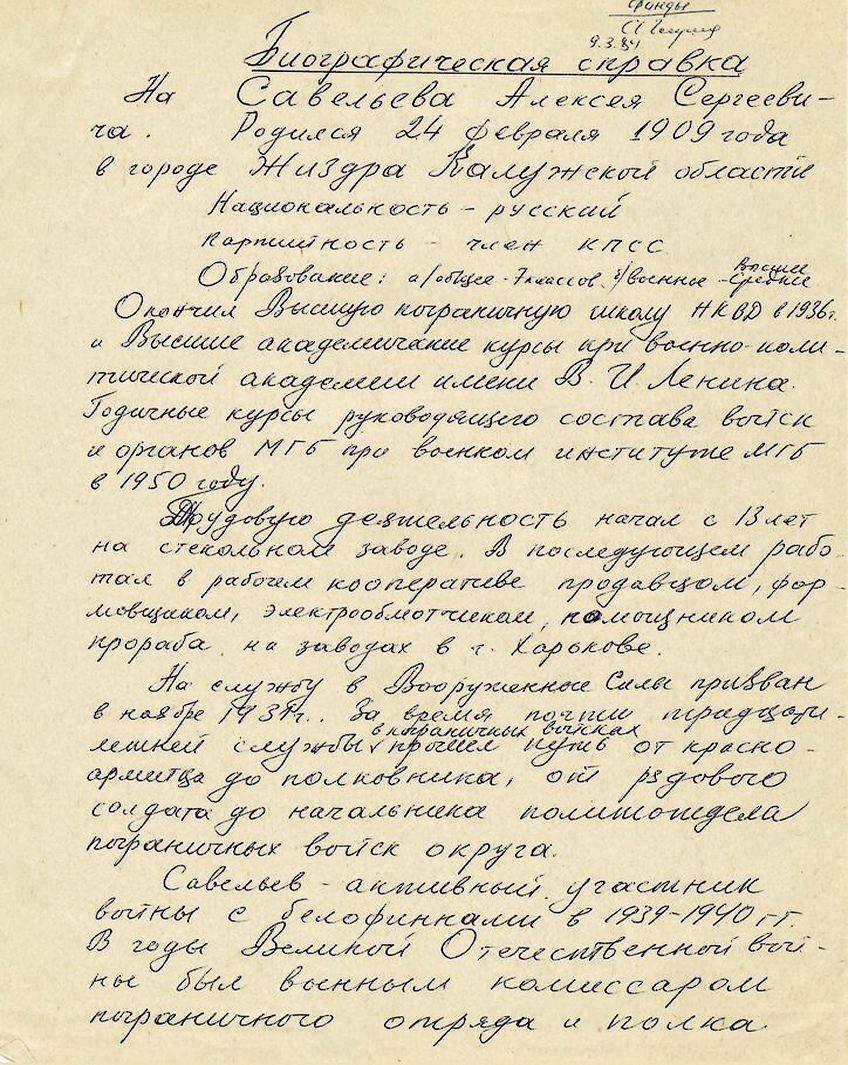 фонды
9.3.84
Биографическая справка
На Савельева Алексея Сергееви-
ча. Родился 24 февраля 1909 года
в городе Жиздра Калужской области
Национальность – русский
партийность – член КПСС
высшее
Образование: а/общее – 7 классов. б/военное – среднее
Окончил Высшую пограничную школу НКВД в 1936 г.
и Высшие академические курсы при военно-поли-
тической академии имени В. И. Ленина.
Годичные курсы руководящего состава войск
и органов МГБ при военном институте МГБ
в 1950 году.
Трудовую деятельность начал с 13 лет
на стекольном заводе. В последующем рабо-
тал в рабочем кооперативе продавцом, фор-
мовщиком, электрообмотчиком, помощником
прораба на заводах в г. Харькове.
На службу в Вооруженные Силы призван
в ноябре 1931 г.. За время почти тридцати-
в пограничных войсках
летней службы прошел путь от красно-
армейца до полковника, от рядового
солдата до начальника политотдела
пограничных войск округа.
Савельев – активный участник
войны с белофиннами в 1939-1940 гг.
В годы Великой Отечественной вой-
ны был военным комиссаром
пограничного отряда и полка.